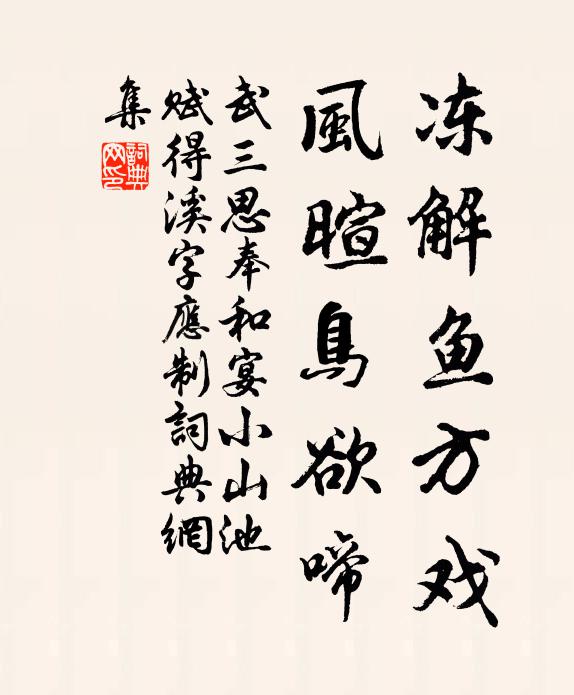 冻解鱼方戏
風暄鳥欲啼
武三思奉和宴小山池
赋得溪字應制詞典網
集
詞典網印